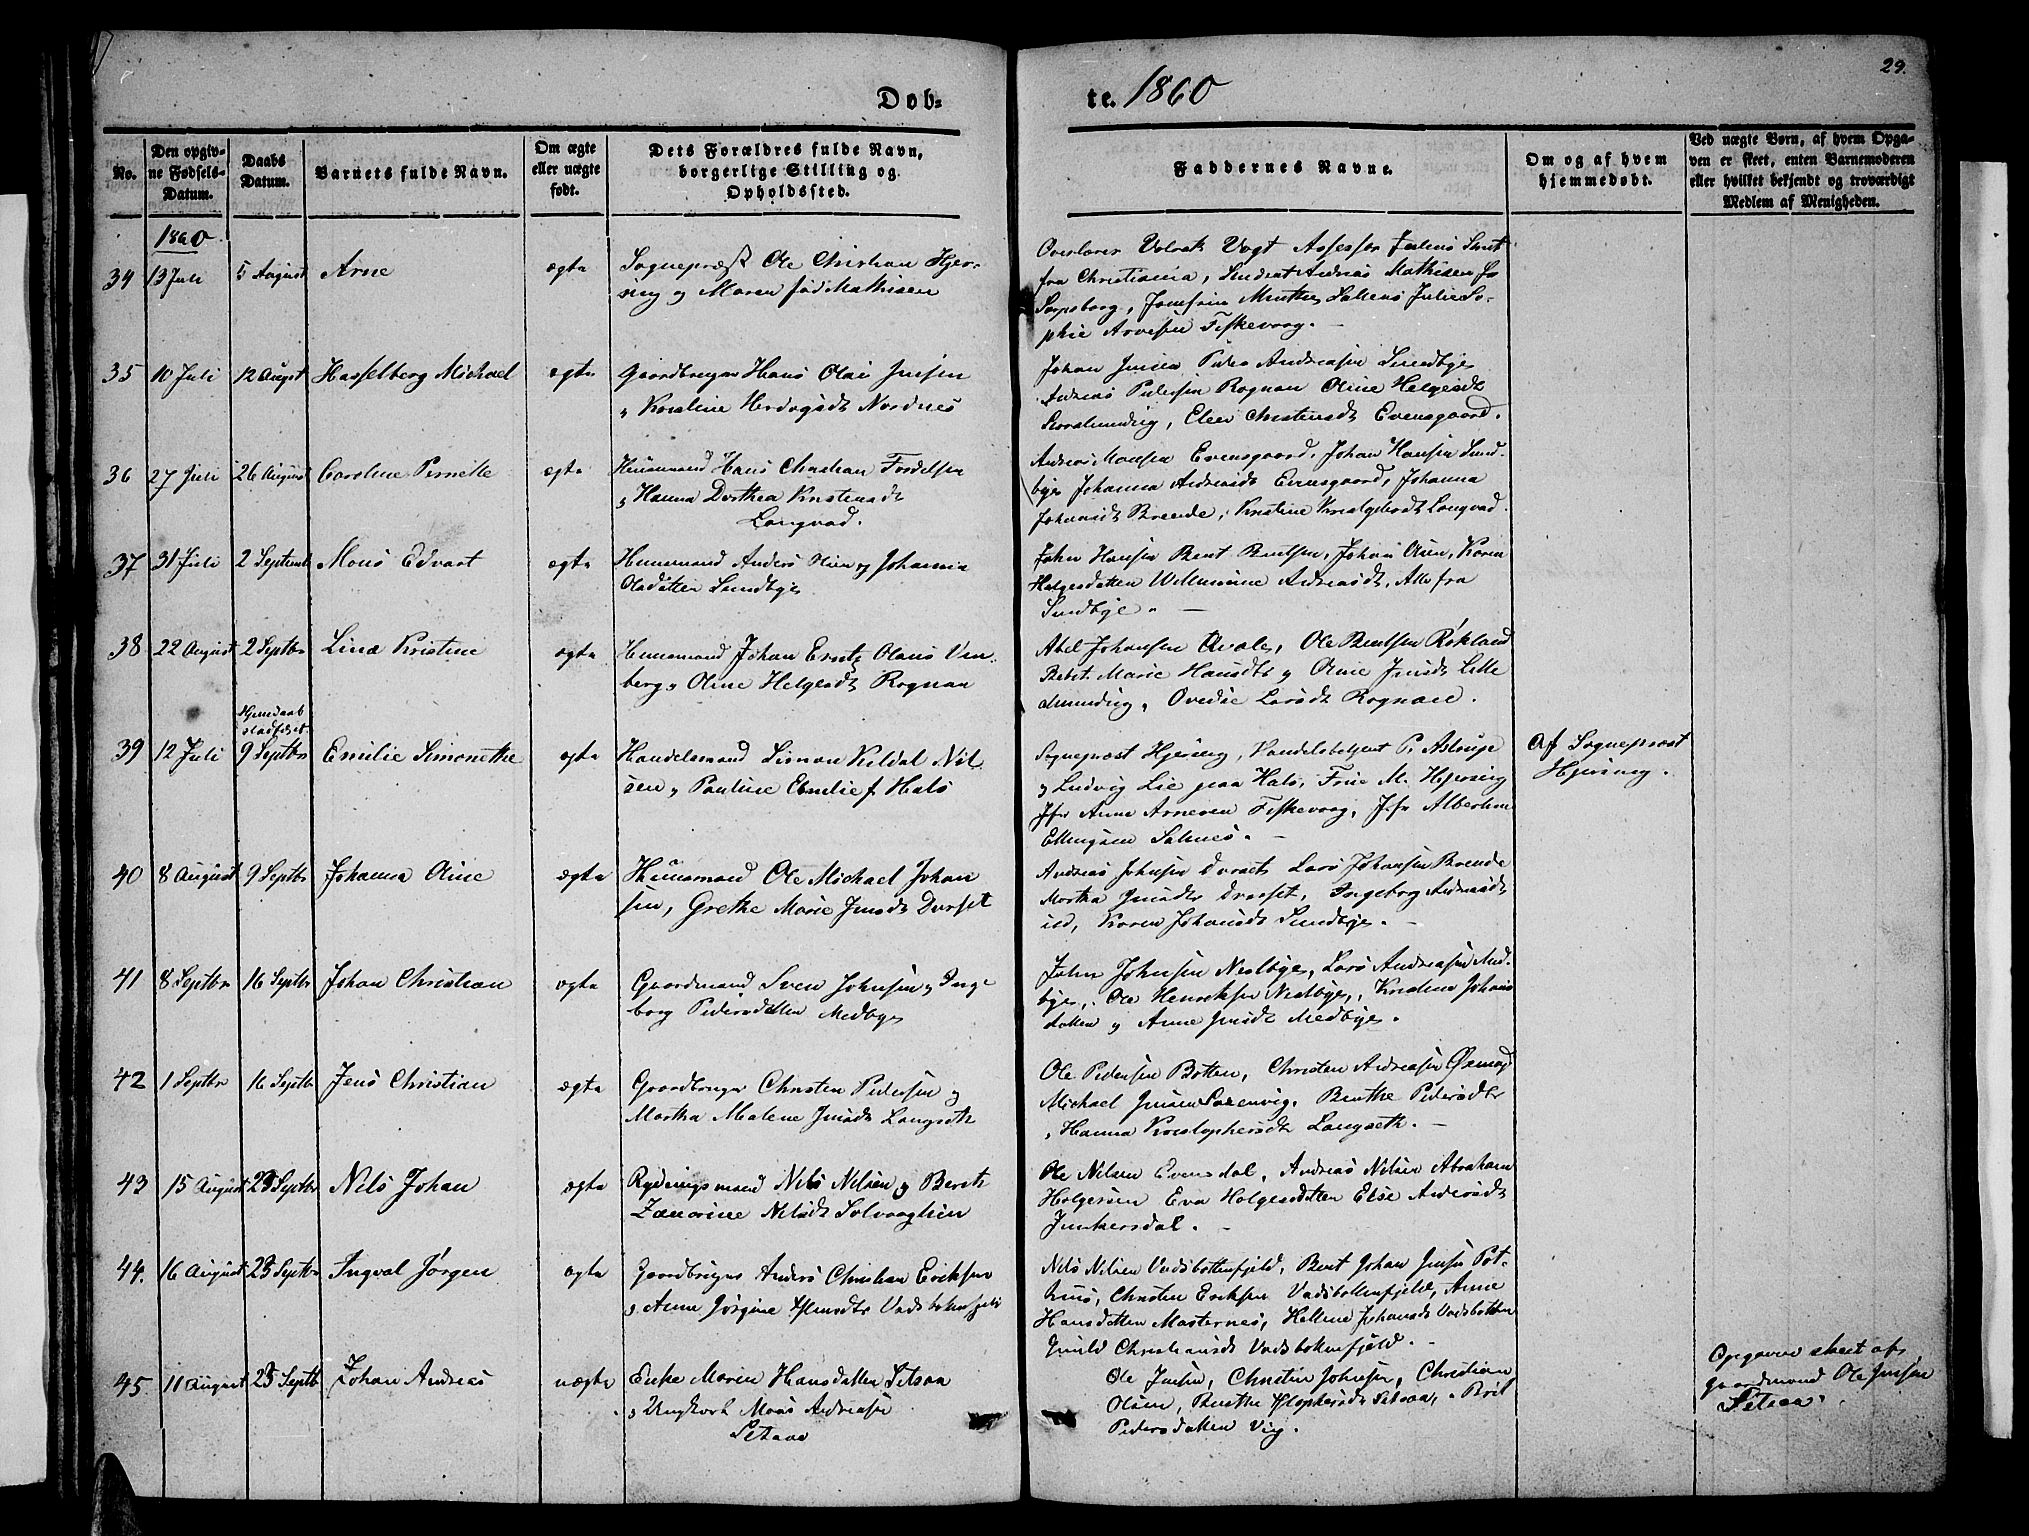 29.
Døb=
te. 1860
No.
Den opgiv=
ne Fødsels=
Datum.
Daabs
Datum.
Barnets fulde Navn.
Om ægte
eller uægte
født.
Dets Forældres fulde Navn,
borgerlige Stilling og
Opholdssted.
Faddernes Navne.
Om og af hvem
hjemmedøbt.
Ved uægte Børn, af hvem Opga=
ven er skeet, enten Barnemoderen
eller hvilket bekjendt og troværdigt
Medlem af Menigheden.
1860
34 13 Juli 5 August Arne ægte Sognepræst Ole Christian Hjer-
sing og Maren fød Mathisen
Overlærer Volrath Vogt Assessor Julius
fra Christiania, Student Andreas Mathisen fra
Sarpsborg, Josefine Munthe Saltnes Julie So-
phie Arvesen Fiskevaag. -
35 10 Juli 12 August Hasselberg Michael ægte Gaardbruger Hans Olai Jensen
" Karoline Hertvigsdt Nordnes
Johan Jensen Peder Andreasen Sundbye
Andreas Pedersen Rognan Oline Helgesdt
Storalmindig, Elen Christensdt Evensgaard.
36 27 Juli 26 August Caroline Pernille ægte Huusmand Hans Christian Fredelsen
" Hanna Dorthea Kristensdt
Langvad.
Andreas Monsen Evensgaard, Johan Hansen Sund-
bye Johanna Andreasdt Evensgaard, Johanna
Johansdt Brende, Kristine Langvad.
37 31 Juli 2 Septemb Mons Edvart ægte Huusmand Anders Olsen og Johanna
Olsdatter Sundbye
John Hansen Bent Bentsen, Johan Olsen, Karen
Helgesdatter Willumine Andreasdt, Alle fra
Sundbye. -
38 22 August 2 Septbr Lina Kristine ægte Huusmand Johan Ernst Olaus Ven-
berg " Oline Helgesdt Rognan
Abel Johansen Qvale, Ole Bentsen Røkland
Marie Hansdtr og Oline Jensdt Lille
almindig, Ovedie Larsdt Rognan.
Hjemdaab
stadfæst
39 12 Juli 9 Septbr Emilie Simonethe ægte Handelsmand Simon Kildal Nil-
sen " Pauline Emilie f. Hals
Sognepræst Hjersing, Handelsbetjent P. Astrup
og Ludvig Lie paa Hals, Frue M. Hjersing
Jfr Anna Arnesen Fiskevaag, Jfr Albertine
Ellingsen Saltnes. -
Af Sognepræst
Hjersing.
40 8 August 9 Septbr Johanna Oline ægte Huusmand Ole Michael Johan
sen, Grethe Marie Jensdt Dverset
Andreas Johnsen Dverset Lars Johansen Brende
Martha Jensdtr Dverset, Ingeborg Andreasdt
ibd, Karen Johansdt Sundbye. -
41 8 Septbr 16 Septbr Johan Christian ægte Gaardmand Sven Johnsen og Inge
borg Pedersdatter Medbye
John Johnsen Nestbye, Lars Andreasen Med-
bye, Ole Henriksen Nestbye, Kristine Johans
datter og Anne Jensdt Medbye.
42 1 Septbr 16 Septbr Jens Christian ægte Gaardbruger Christen Pedersen og
Martha Malene Jensdt Langseth
Ole Pedersen Botten, Christen Andreasen
Michael Jensen Saxenvig, Benthe Pedersdtr
" Hanna Kristophersdt Langseth. -
43 15 August 23 Septbr Nils Johan ægte Rydningsmand Nils Nilsen og Berit
Zakarine Nilsdt Solvaaglien
Ole Nilsen Evensdal, Andreas Nilsen Abraham
Helgesen Eva Helgesdatter Else Andersdt
Junkersdal. -
44. 16 August 23 Septbr Ingval Jørgen ægte Gaardbruger Anders Christian Eriksen
" Anne Jørgine Vadsbotnfjeld
Nils Nilsen Vadsbottenfjeld, Bent Johan Jensen Pot-
huus, Christen Eriksen Vadsbottenfjeld, Anne
Hansdatter Masternes, Hellene Johansdt Vadsbotten
Gunild Christiansdt Vadsbotnfjeld. -
45 11 August 23 Septb Johan Andreas uægte Enke Maren Hansdatter Setsaa
" Ungkarl Mons Andreasen
Setsaa
Ole Jensen, Christen Johnsen, Christian
Olsen, Benthe Setsaa, " Brit
Pedersdatter Vig.
Opgaven skeet af
gaardmand Ole Jensen
Setsaa.